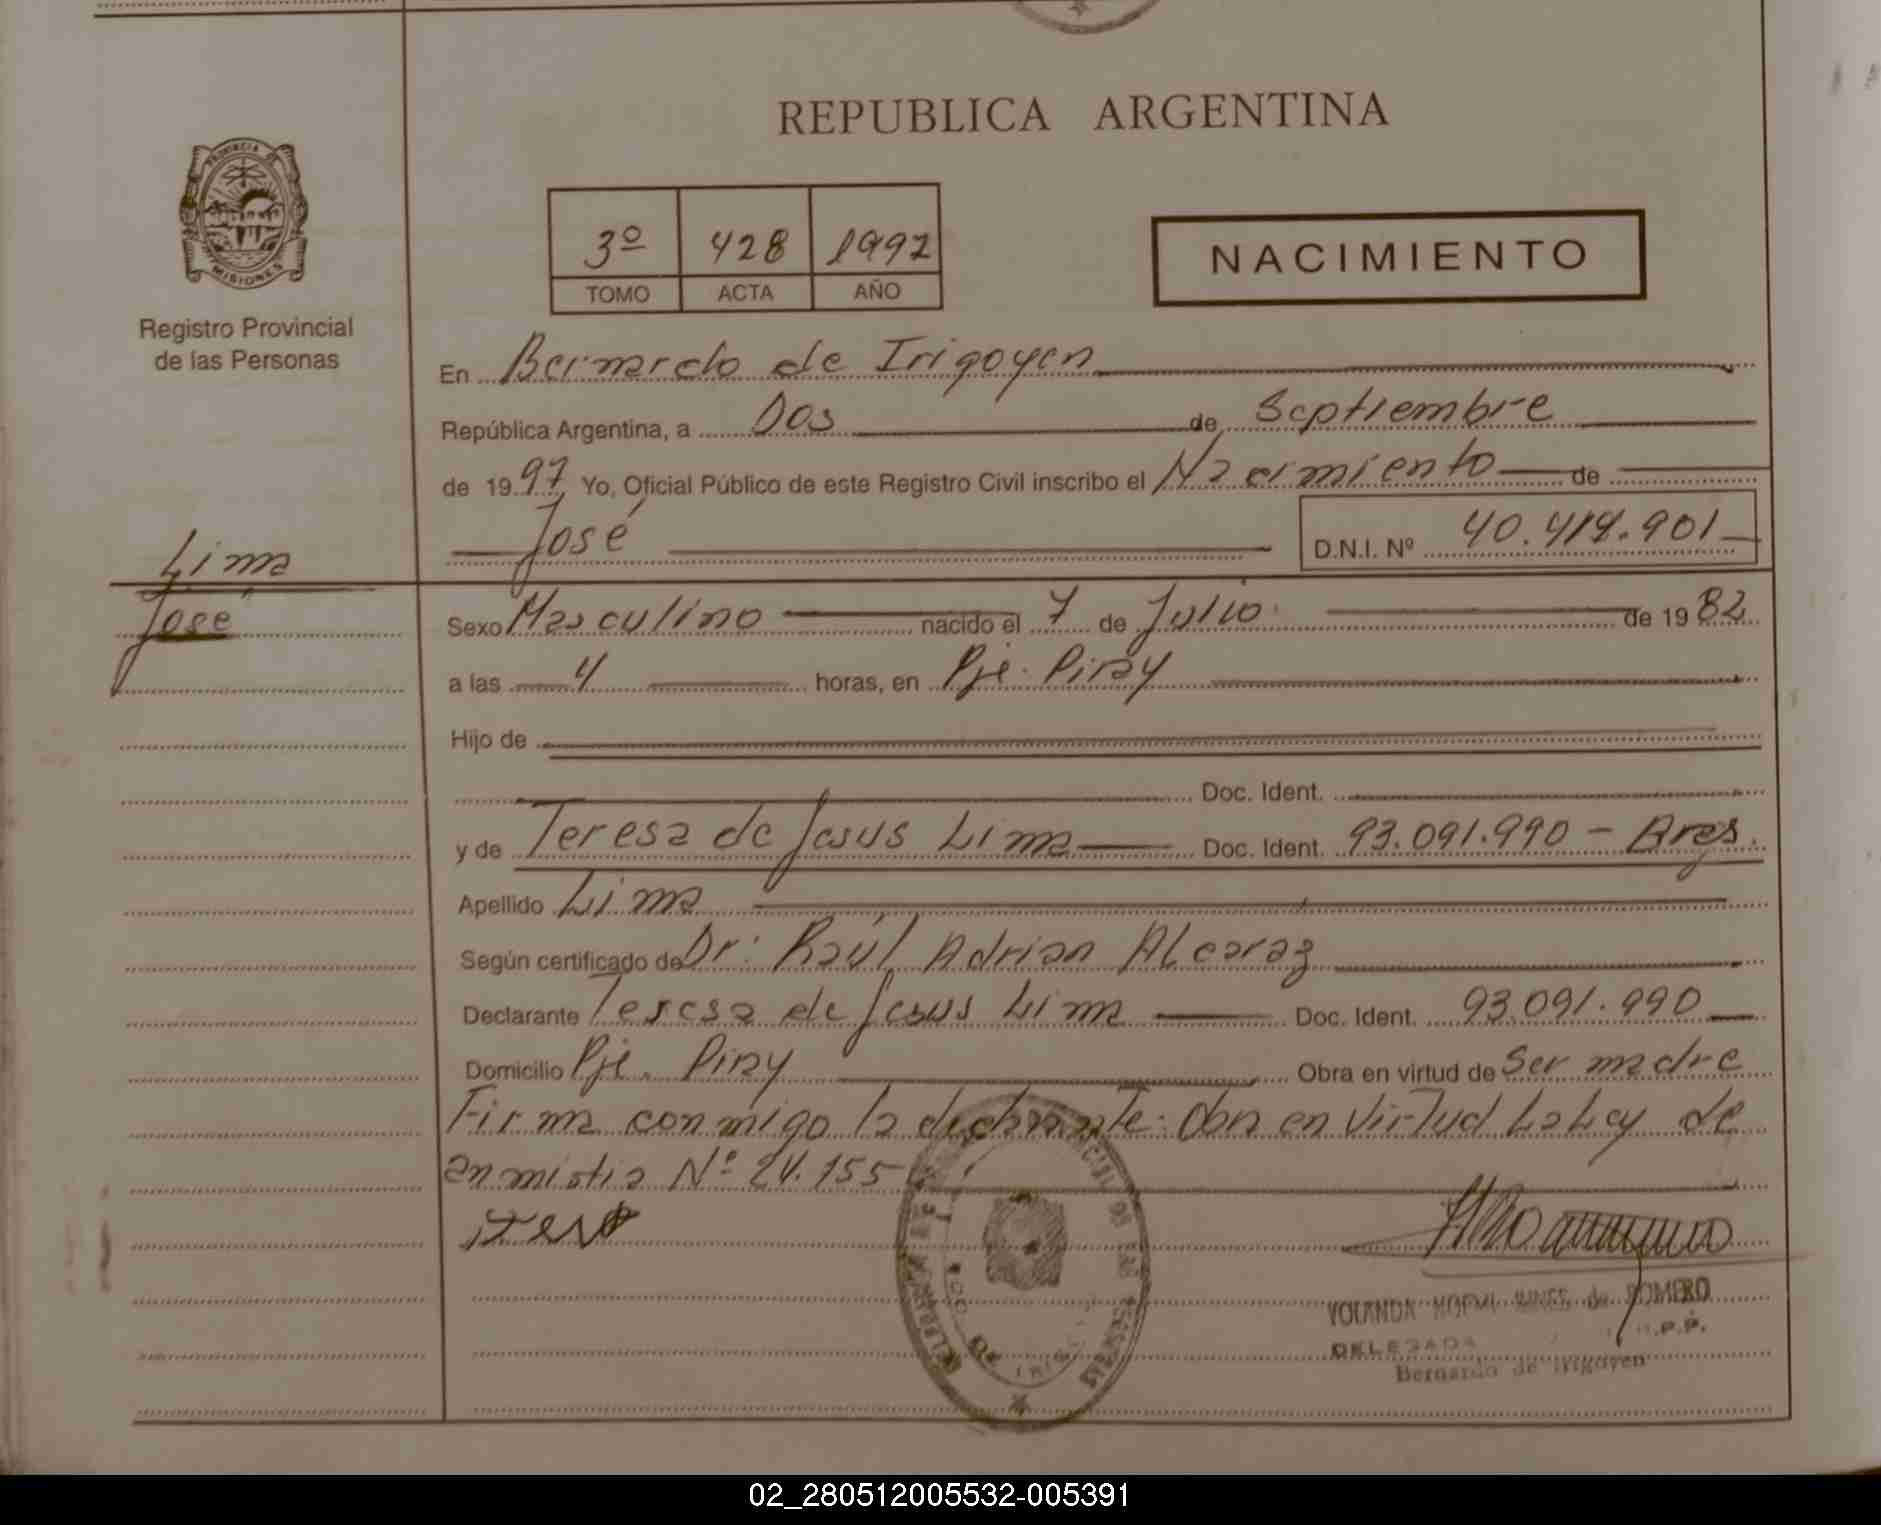 REPUBLICA ARGENTINA
PROVINCIA DE
MISIONES
Registro Provincial
de las Personas
3º 428 1997
TOMO ACTA AÑO
NACIMIENTO
En Bernardo de Irigoyen
República Argentina, a Dos de Septiembre
de 1997 Yo, Oficial Público de este Registro Civil inscribo el Nacimiento de
José D.N.I. Nº 40.414.901
Lima
José
Sexo Masculino nacido el 7 de Julio de 1982
a las 4 horas, en Pje. Piray
Hijo de
Doc. Ident.
y de Teresa de Jesus Lima Doc. Ident. 93.091.990 - Arg.
Apellido Lima
Según certificado de Dr: Raúl Adrian Alcaraz
Declarante Teresa de Jesus Lima Doc. Ident. 93.091.990
Domicilio Pje. Piray Obra en virtud de Ser madre
Firma conmigo la declarante. Obra en virtud La Ley de
anmistia Nº 24.155
YOLANDA NOEMI de ROMERO
DELEGADA R.P.P.
Bernardo de Irigoyen
02_280512005532-005391